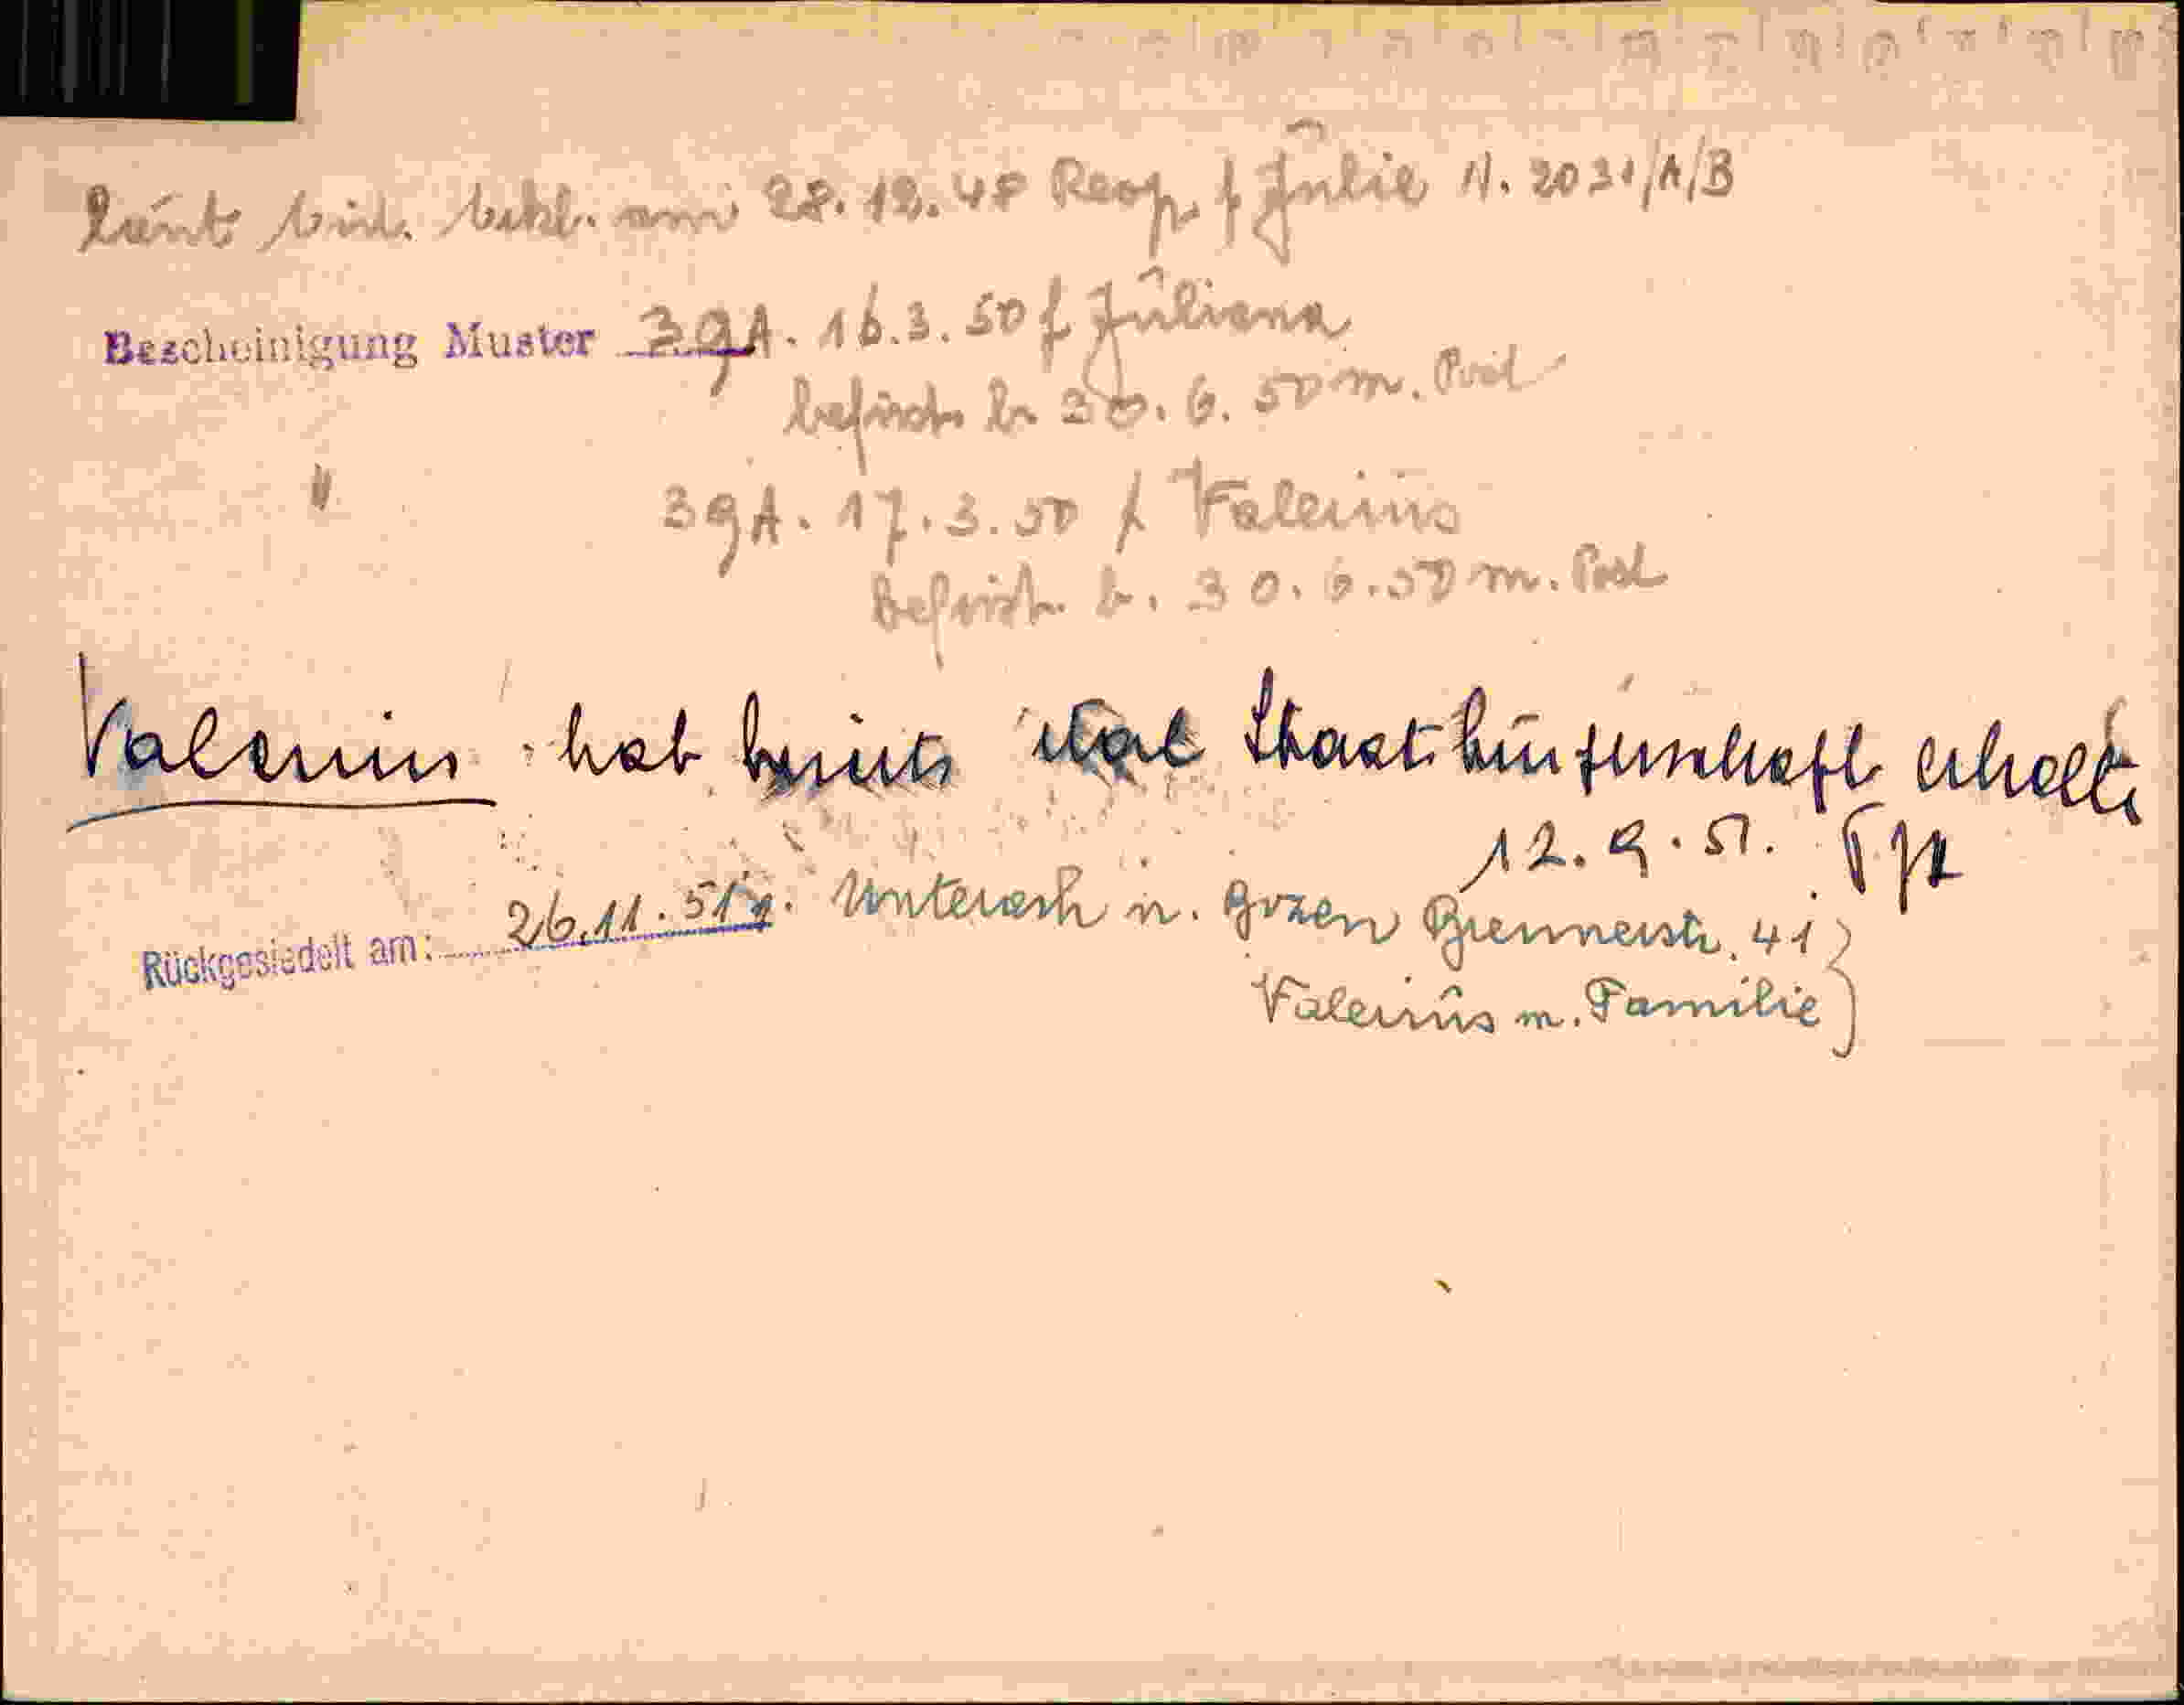 läuft bish. Erkl. am 28.12.48 Reop. f Julie N. 2031/A/B
Bescheinigung Muster 39A. 16.3.50 f Juliana
befrist. b. 30.6.50 m. Post
" 39A. 17.3.50 f Valerius
befrist. b. 30.6.50 m. Post
Valerius hat bereits ital Staatsbürgerschaft erhalten
12.9.51.
Rückgesiedelt am: 26.11.51 n. Unterach n. Bozen Brennerstr. 41)
Valerius m. Familie)